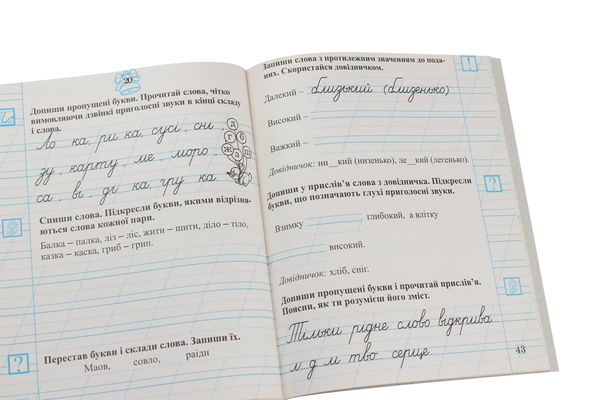 20
Допиши пропущені букви. Прочитай слова, чітко
вимовляючи дзвінкі приголосні звуки в кінці складу
і слова.
Ло ка, ри ка, сусі , сні ,
д
г б
ж з
зу , карту , ме , моро ,
са , ві , ді ка, гру ка
Спиши слова. Підкресли букви, якими відрізня-
ються слова кожної пари.
Балка – палка, ліз – ліс, жити – шити, діло – тіло,
казка – каска, гриб – грип.
?
Перестав букви і склади слова. Запиши їх.
Маов, совло, раїди
Запиши слова з протилежним значенням до пода-
них. Скористайся довідничком.
!
Далекий – близький (близенько)
Високий –
Важкий –
Довідничок: ни__кий (низенько), ле__кий (легенько).
Допиши у прислів'я слова з довідничка. Підкресли
букви, що позначають глухі приголосні звуки.
?
Взимку глибокий, а влітку
високий.
Довідничок: хліб, сніг.
Допиши пропущені букви і прочитай прислів'я.
Поясни, як ти розумієш його зміст.
Тільки рідне слово відкрива...
м...д...м тво... серце.
43